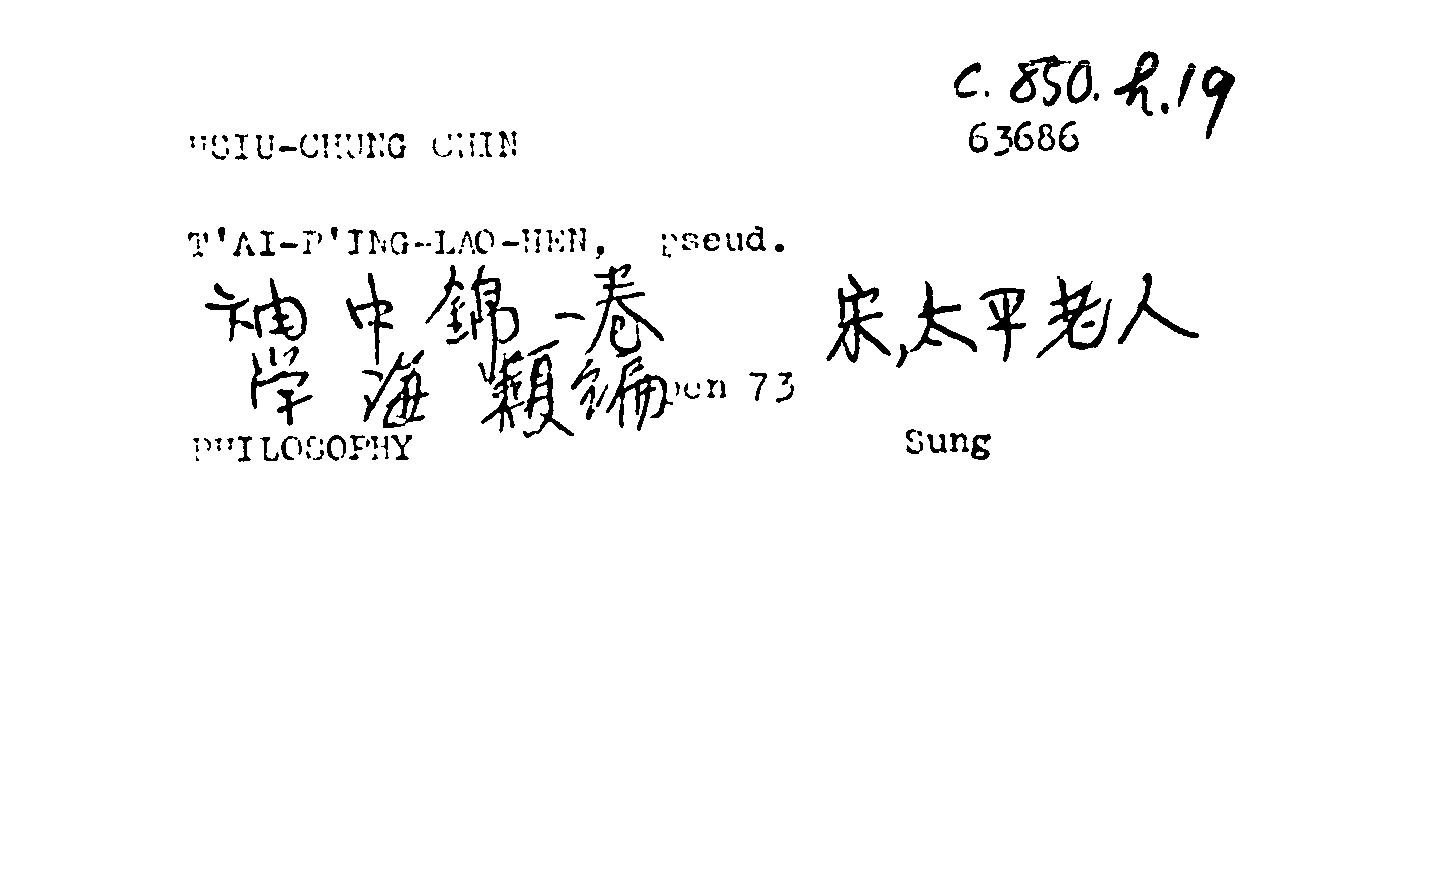 C. 850. h.19
63686
HSIU-CHUNG CHIN
T'AI-P'ING-LAO-JEN, pseud.
袖中錦一卷 宋,太平老人
学海類編 pen 73
PHILOSOPHY Sung